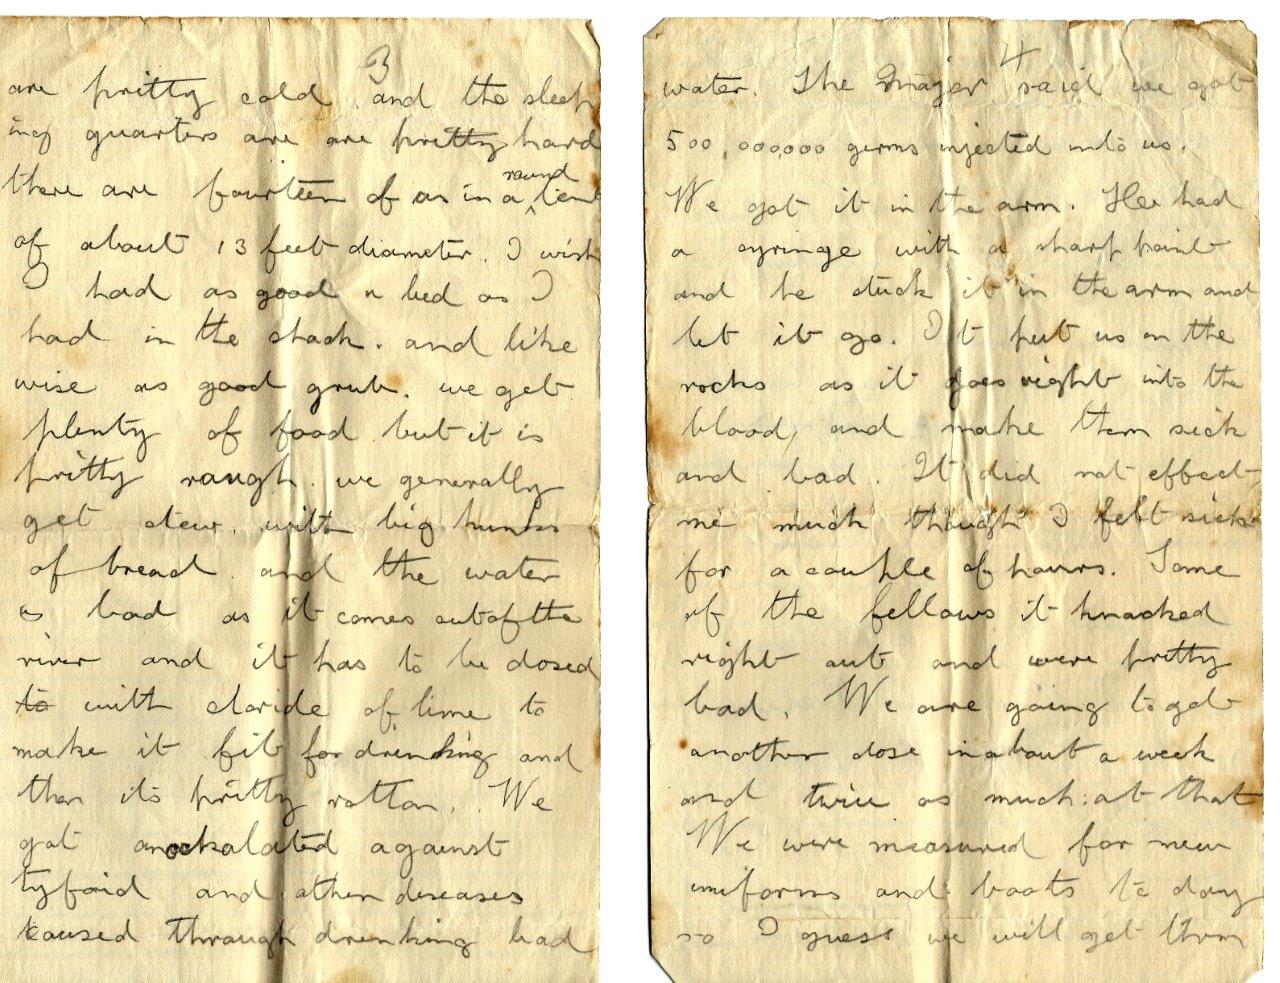 3
are pritty cold and the sleep
ing quarters are are pritty hard
there are fourteen of us in a round tent
of about 13 feet diameter. I wish
I had as good a bed as I
had in the shack. and like
wise as good grub. we get
plenty of food but it is
pritty rough. we generally
get stew. with big hunks
of bread and the water
is bad as it comes out of the
river and it has to be dosed
to with cloride of lime to
make it fit for drinking and
then its pritty rotton. We
got anockalated against
tyfoid and other deseases
caused through drinking bad
4
water. The Major said we got
500,000,000 germs injected into us.
We got it in the arm. He had
a syringe with a sharp point
and he stuck it in the arm and
let it go. It put us on the
rocks as it goes right into the
blood, and make them sick
and bad. It did not effect
me much though I felt sick
for a couple of hours. Some
of the fellows it knocked
right out and were pritty
bad. We are going to get
another dose in about a week
and twice as much at that
We were measured for new
uniforms and boots to day
so I guess we will get them